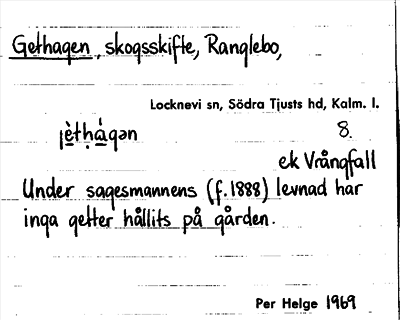 Gethagen, skogsskifte, Ranglebo,
Locknevi sn, Södra Tjusts hd, Kalm. l.
jètḥàgən 8.
ek Vrångfall
Under sagesmannens (f. 1888) levnad har
inga getter hållits på gården.
Per Helge 1969